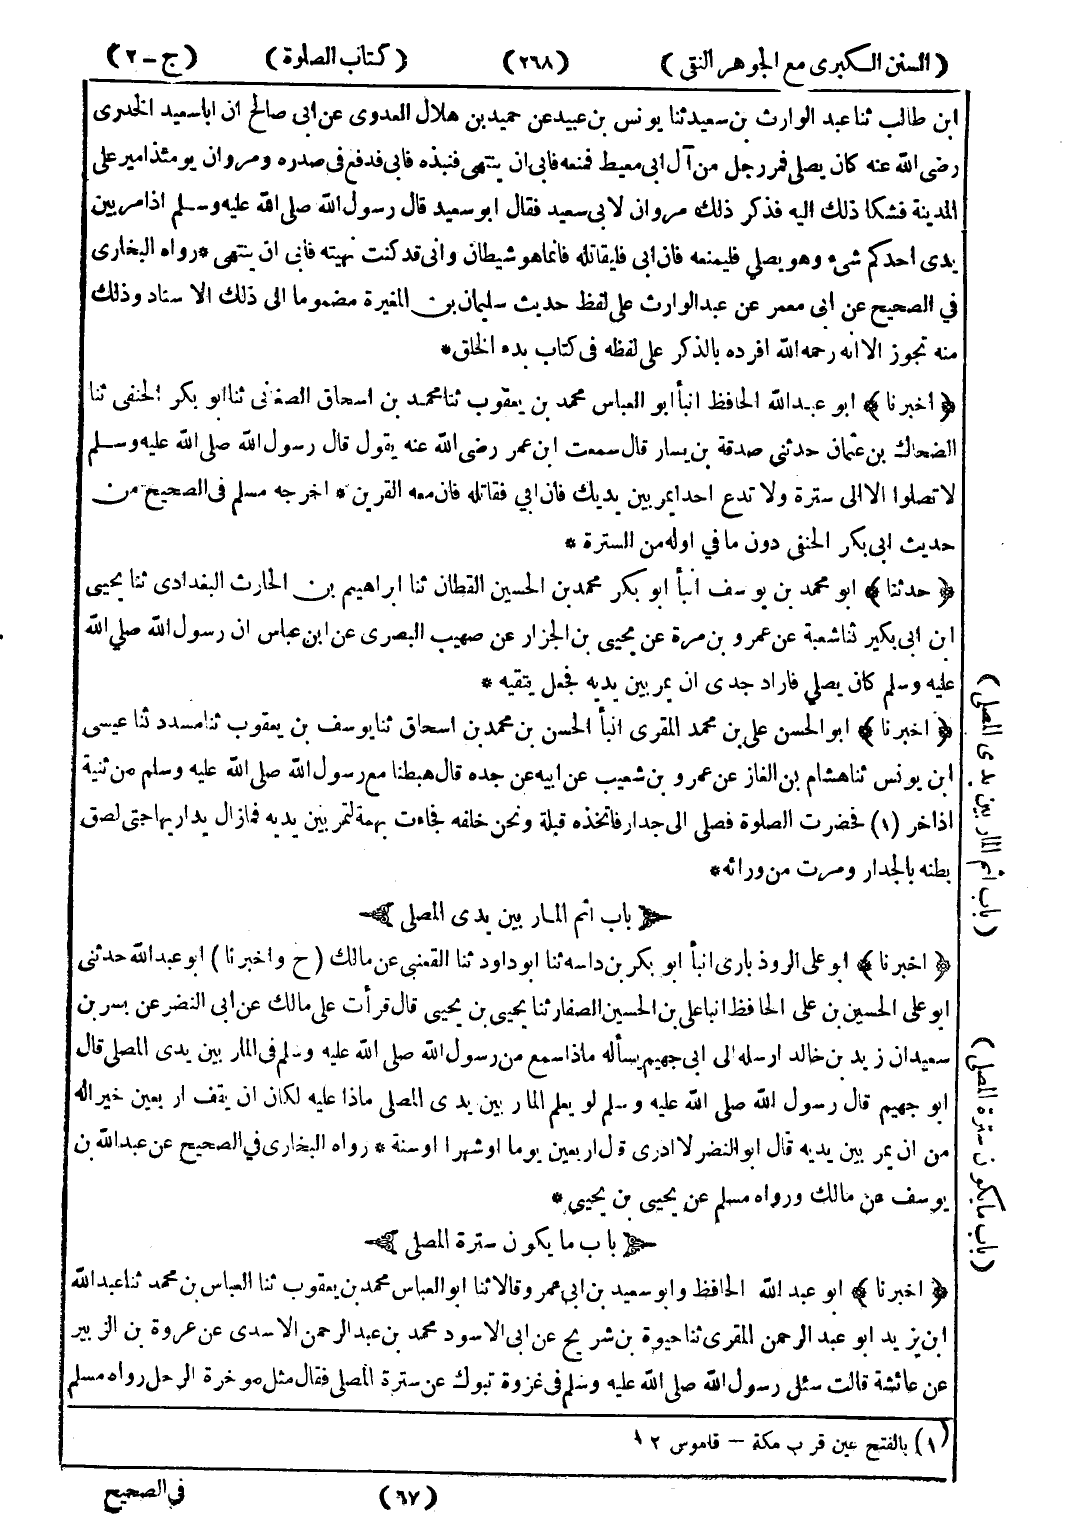 (السنن الكبرى مع الجوهر النقى) (٢٦٨) (كتاب الصلوة) (ج-٢)
ابن طالب ثنا عبد الوارث بن سعيد ثنا يونس بن عبيد عن حميد بن هلال العدوى عن ابى صالح ان اباسعيد الخدرى
رضى الله عنه كان يصلى فمر رجل من آل ابى معيط فمنعه فابى ان ينتهى فنبذه فابى فدفع فى صدره ومروان يومئذ امير على
المدينة فشكا ذلك اليه فذكر ذلك مروان لابى سعيد فقال ابوسعيد قال رسول الله صلى الله عليه وسلم اذا مر بين
يدى احدكم شىء وهو يصلي فليمنعه فان ابى فليقاتله فانما هو شيطان وانى قد كنت نهيته فابى ان ينتهى * رواه البخارى
في الصحيح عن ابى معمر عن عبد الوارث على لفظ حديث سليمان بن المغيرة مضموما الى ذلك الاسناد وذلك
منه تجوز الا انه رحمه الله افرده بالذكر على لفظه فى كتاب بدء الخلق *
﴿اخبرنا﴾ ابو عبد الله الحافظ انبأ ابو العباس محمد بن يعقوب ثنا محمد بن اسحاق الصغانى ثنا ابو بكر الحنفى ثنا
الضحاك بن عثمان حدثنى صدقة بن يسار قال سمعت ابن عمر رضى الله عنه يقول قال رسول الله صلى الله عليه وسلم
لا تصلوا الا الى سترة ولا تدع احدا يمر بين يديك فان ابي فقاتله فان معه القرين * اخرجه مسلم فى الصحيح من
حديث ابى بكر الحنفى دون ما في اوله من السترة *
﴿حدثنا﴾ ابو محمد بن يوسف انبأ ابو بكر محمد بن الحسين القطان ثنا ابراهيم بن الحارث البغدادى ثنا يحيى
ابن ابى بكير ثنا شعبة عن عمرو بن مرة عن يحيى بن الجزار عن صهيب البصرى عن ابن عباس ان رسول الله صلى الله
عليه وسلم كان يصلي فاراد جدى ان يمر بين يديه فجعل يتقيه *
﴿اخبرنا﴾ ابو الحسن على بن محمد المقرى انبأ الحسن بن محمد بن اسحاق ثنا يوسف بن يعقوب ثنا مسدد ثنا عيسى
ابن يونس ثنا هشام بن الغاز عن عمرو بن شعيب عن ابيه عن جده قال هبطنا مع رسول الله صلى الله عليه وسلم من ثنية
اذاخر (١) فحضرت الصلوة فصلى الى جدار فاتخذه قبلة ونحن خلفه فجاءت بهمة لتمر بين يديه فمازال يداريها حتى لصق
بطنه بالجدار ومرت من ورائه *
باب اثم المار بين يدى المصلى
﴿اخبرنا﴾ ابو على الروذبارى انبأ ابو بكر بن داسه ثنا ابو داود ثنا القعنبى عن مالك (ح واخبرنا) ابو عبد الله حدثنى
ابو على الحسين بن على الحافظ انبا على بن الحسين الصفار ثنا يحيى بن يحيى قال قرأت على مالك عن ابى النضر عن بسر بن
سعيد ان زيد بن خالد ارسله الى ابى جهيم يسأله ماذا سمع من رسول الله صلى الله عليه وسلم فى المار بين يدى المصلى قال
ابو جهيم قال رسول الله صلى الله عليه وسلم لو يعلم المار بين يدى المصلى ماذا عليه لكان ان يقف اربعين خير اله
من ان يمر بين يديه قال ابو النضر لا ادرى قال اربعين يوما او شهرا او سنة * رواه البخارى في الصحيح عن عبد الله بن
يوسف عن مالك ورواه مسلم عن يحيى بن يحيى *
باب ما يكون سترة المصلى
﴿اخبرنا﴾ ابو عبد الله الحافظ وابو سعيد بن ابى عمرو قالا ثنا ابو العباس محمد بن يعقوب ثنا العباس بن محمد ثنا عبد الله
ابن يزيد ابو عبد الرحمن المقرى ثنا حيوة بن شريح عن ابى الاسود محمد بن عبد الرحمن الاسدى عن عروة بن الزبير
عن عائشة قالت سئلى رسول الله صلى الله عليه وسلم فى غزوة تبوك عن سترة المصلى فقال مثل موخرة الرحل رواه مسلم
(باب اثم المار بين يدى المصلى)
(باب مايكون سترة المصلى)
(١) بالفتح عين قرب مكة – قاموس ١٢
(٦٧) في الصحيح